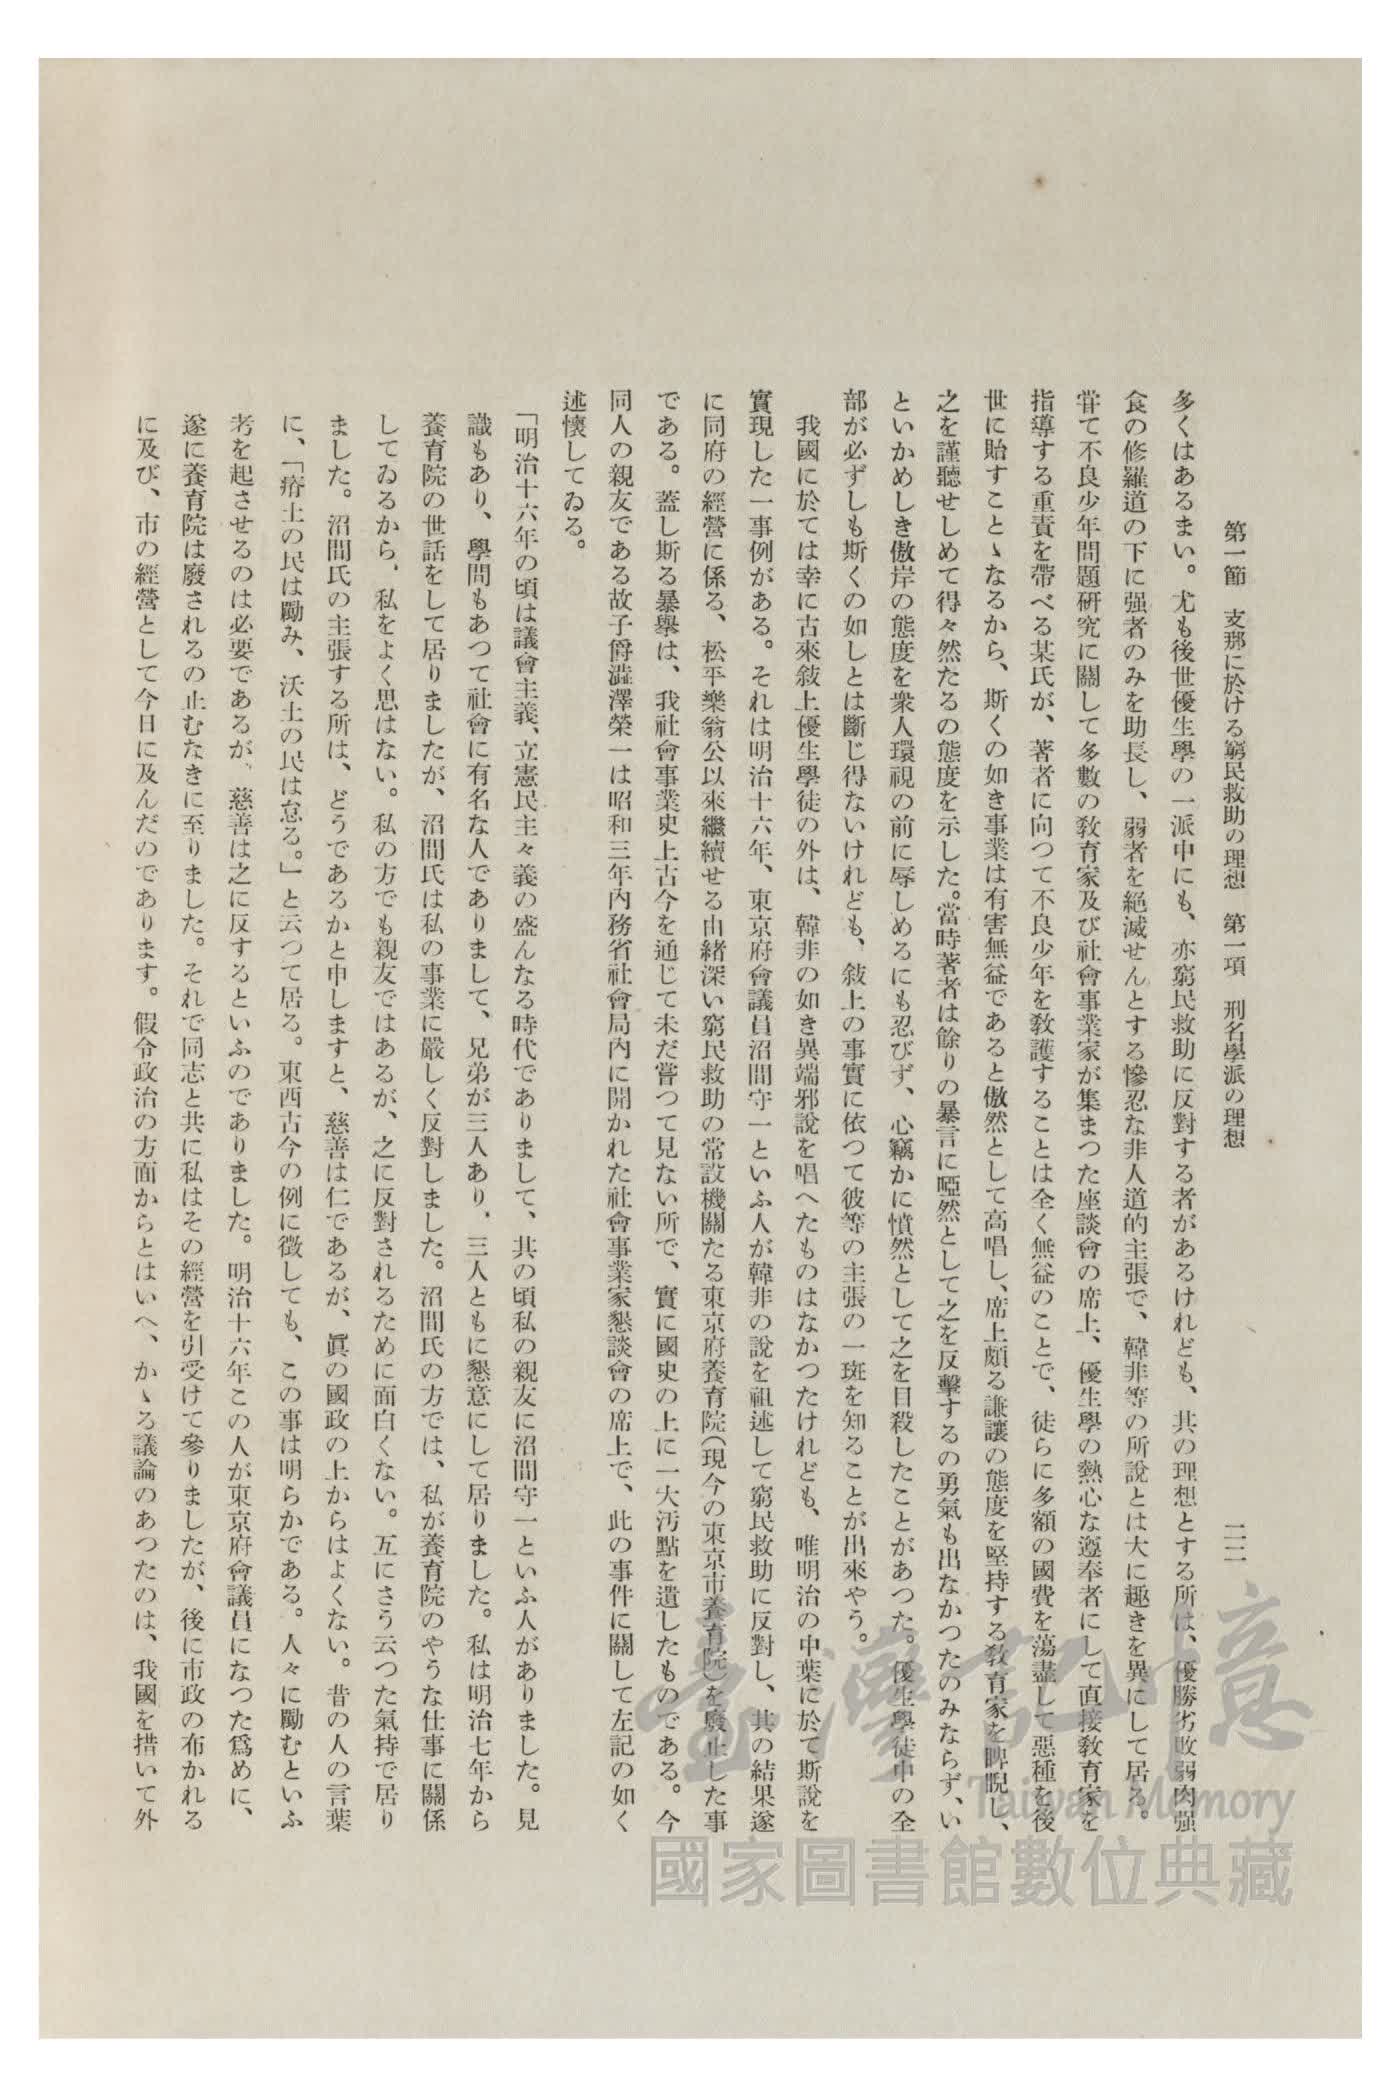 第一節　支那に於ける窮民救助の理想　第一項　刑名學派の理想　二二
多くはあるまい。尤も後世優生學の一派中にも、亦窮民救助に反對する者があるけれども、其の理想とする所は、優勝劣敗弱肉强
食の修羅道の下に强者のみを助長し、弱者を絕滅せんとする慘忍な非人道的主張で、韓非等の所說とは大に趣きを異にして居る。
甞て不良少年問題硏究に關して多數の敎育家及び社會事業家が集まつた座談會の席上、優生學の熱心な遵奉者にして直接敎育家を
指導する重責を帶べる某氏が、著者に向つて不良少年を敎護することは全く無益のことで、徒らに多額の國費を蕩盡して惡種を後
世に貽すことゝなるから、斯くの如き事業は有害無益であると傲然として高唱し、席上頗る謙讓の態度を堅持する敎育家を睥睨し、
之を謹聽せしめて得々然たるの態度を示した。當時著者は餘りの暴言に啞然として之を反擊するの勇氣も出なかつたのみならず、い
といかめしき傲岸の態度を衆人環視の前に辱しめるにも忍びず、心竊かに憤然として之を目殺したことがあつた。優生學徒中の全
部が必ずしも斯くの如しとは斷じ得ないけれども、敍上の事實に依つて彼等の主張の一斑を知ることが出來やう。
我國に於ては幸に古來敍上優生學徒の外は、韓非の如き異端邪說を唱へたものはなかつたけれども、唯明治の中葉に於て斯說を
實現した一事例がある。それは明治十六年、東京府會議員沼間守一といふ人が韓非の說を祖述して窮民救助に反對し、其の結果遂
に同府の經營に係る、松平樂翁公以來繼續せる由緖深い窮民救助の常設機關たる東京府養育院(現今の東京市養育院)を廢止した事
である。蓋し斯る暴擧は、我社會事業史上古今を通じて未だ嘗つて見ない所で、實に國史の上に一大汚點を遺したものである。今
同人の親友である故子爵澁澤榮一は昭和三年內務省社會局內に開かれた社會事業家懇談會の席上で、此の事件に關して左記の如く
述懷してゐる。
「明治十六年の頃は議會主義、立憲民主々義の盛んなる時代でありまして、其の頃私の親友に沼間守一といふ人がありました。見
識もあり、學問もあつて社會に有名な人でありまして、兄弟が三人あり、三人ともに懇意にして居りました。私は明治七年から
養育院の世話をして居りましたが、沼間氏は私の事業に嚴しく反對しました。沼間氏の方では、私が養育院のやうな仕事に關係
してゐるから、私をよく思はない。私の方でも親友ではあるが、之に反對されるために面白くない。互にさう云つた氣持で居り
ました。沼間氏の主張する所は、どうであるかと申しますと、慈善は仁であるが、眞の國政の上からはよくない。昔の人の言葉
に、「瘠土の民は勵み、沃土の民は怠る。」と云つて居る。東西古今の例に徵しても、この事は明らかである。人々に勵むといふ
考を起させるのは必要であるが、慈善は之に反するといふのでありました。明治十六年この人が東京府會議員になつた爲めに、
遂に養育院は廢されるの止むなきに至りました。それで同志と共に私はその經營を引受けて參りましたが、後に市政の布かれる
に及び、市の經營として今日に及んだのであります。假令政治の方面からとはいへ、かゝる議論のあつたのは、我國を措いて外
臺灣記憶
Taiwan Memory
國家圖書館數位典藏